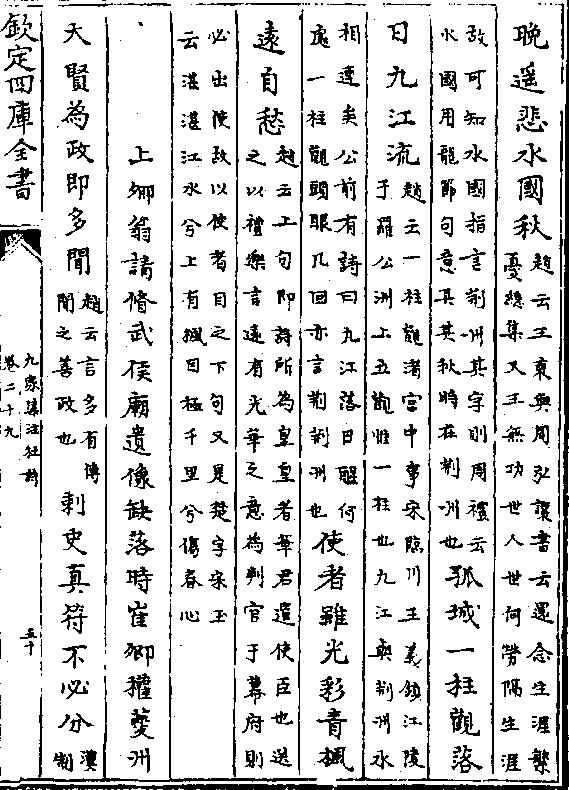 晚遥悲水國秋趙云王東與周弘讓書云還念生涯繁憂總集又王無功世人世何勞隔生涯
故可知水國指言荆州其字則周禮云水國用龍節句意具其秋時在荆州也孤城一柱觀落
日九江流趙云一柱觀渚宫中事宋臨川王義鎮江陵于羅公洲上立觀惟一柱也九江與荆州水
相連矣公前有詩曰九江落日醒何處一柱觀頭眠几回亦言荆荆州也使者雖光彩青楓
遠自愁趙云上句即詩所為皇皇者華君遣使臣也送之以禮樂言遠有光華之意為判官于幕府則
必出使故以使者目之下句又是楚字宋玉云湛湛江水兮上有楓目極千里兮傷春心
上卿翁請脩武侯廟遺像缺落時崔卿權夔州
大賢為政即多聞趙云言多有傳聞之善政也刺史真符不必分漢制
欽定四庫全書
九家集注杜詩
卷二十九
五十